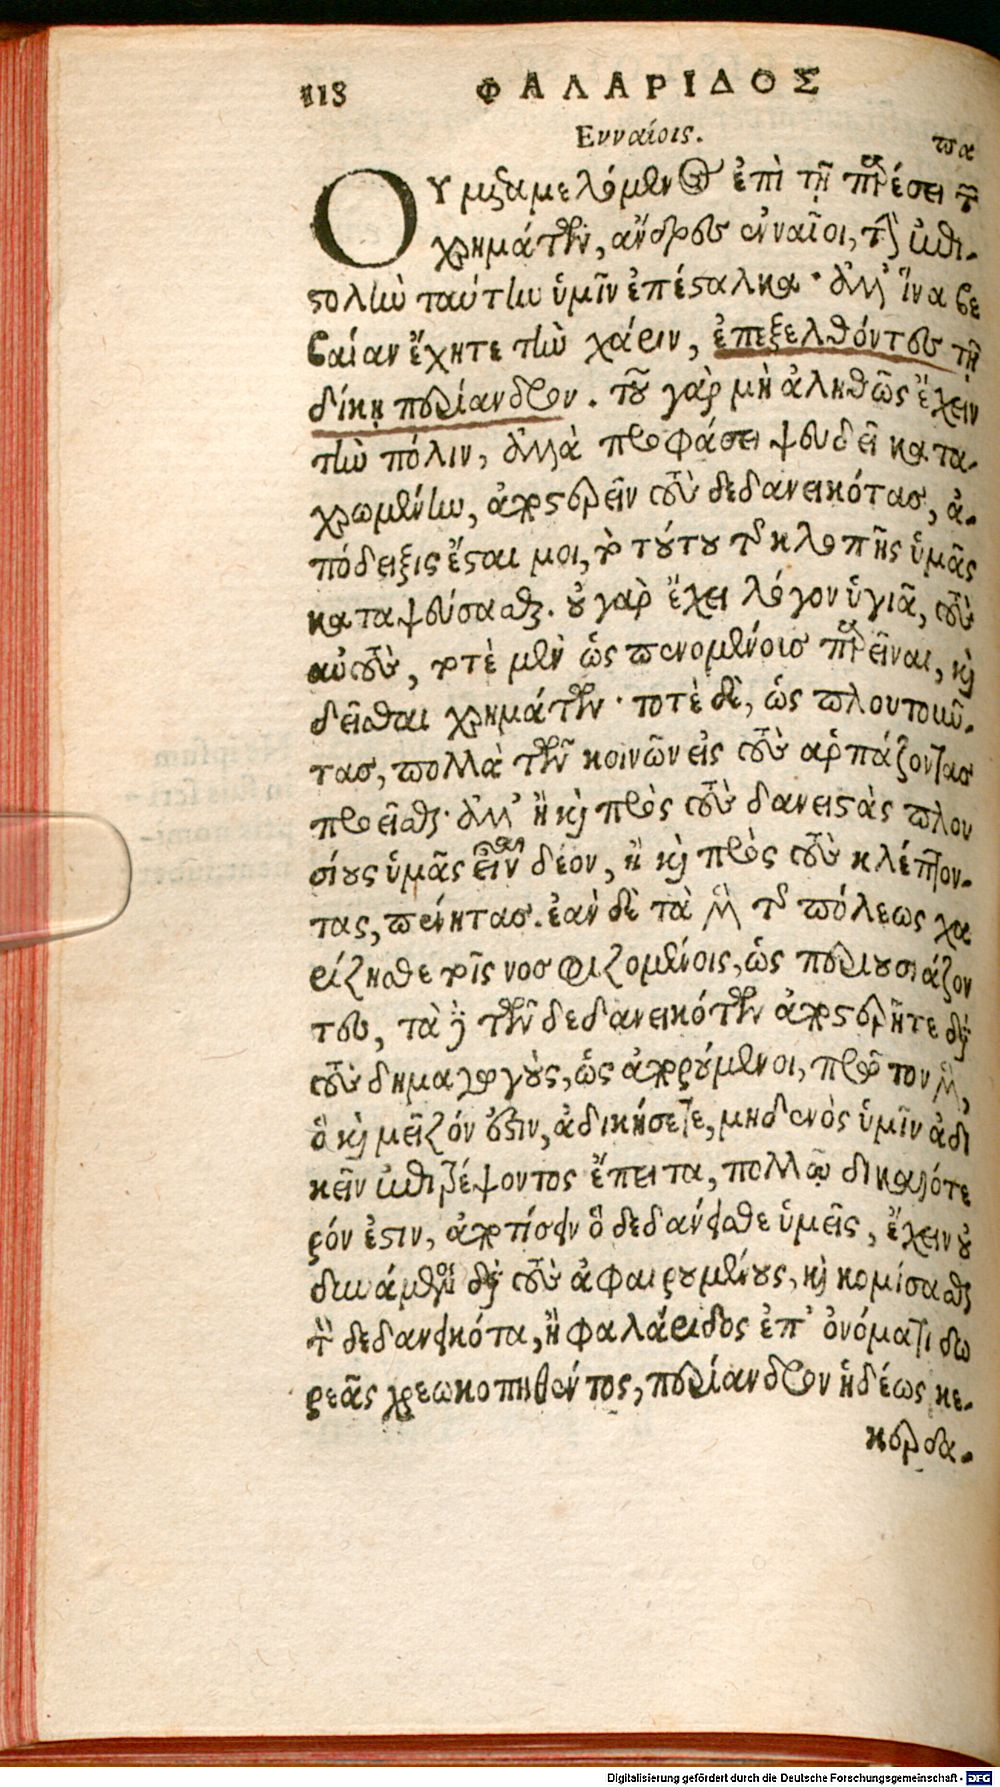 118 ΦΑΛΑΡΙΔΟΣ
Ενναίοις. πα
Ου μεταμελόμενος ἐπὶ τῇ παρέσει τῶν
χρημάτων, ἄνδρες ἐνναῖοι, τὴν ἐπι-
στολὴν ταύτην ὑμῖν ἐπέσταλκα· ἀλλ' ἵνα βε
βαίαν ἔχητε τὴν χάριν, ἐπεξελθόντες τῇ
δίκῃ περίανδρον. τοῦ γὰρ μὴ ἀληθῶς ἔχειν
τὴν πόλιν, ἀλλὰ προφάσει ψευδεῖ κατα-
χρωμένην, ἀποστερεῖν τοὺς δεδανεικότας, ἀ-
πόδειξις ἔσται μοι, τὸ τούτου τῆς κλοπῆς ὑμᾶς
καταψεύσασθαι. οὐ γὰρ ἔχει λόγον ὑγιᾶ, τοὺς
αὐτοὺς, τοτὲ μὲν ὡς πενομένοις παρεῖναι, καὶ
δεῖσθαι χρημάτων· τοτὲ δὲ, ὡς πλουτοῦν-
τας, πολλὰ τῶν κοινῶν εἰς τοὺς ἁρπάζοντας
προεῖσθαι· ἀλλ' ἢ καὶ πρὸς τοὺς δανειστὰς πλου
σίους ὑμᾶς εἶναι δέον, ἢ καὶ πρὸς τοὺς κλέπτον-
τας, πένητας. ἐὰν δὲ τὰ μὲν τῆς πόλεως χα
ρίζησθε τοῖς νοσφιζομένοις, ὡς περιουσιάζον
τες, τὰ δὲ τῶν δεδανεικότων ἀποστερῆτε διὰ
τοὺς δημαγωγοὺς, ὡς ἀπορούμενοι, πρῶτον μὲν,
ὃ καὶ μεῖζόν ἐστιν, ἀδικήσετε, μηδενὸς ὑμῖν ἀδι
κεῖν ἐπιτρέψοντος ἔπειτα, πολλῷ δικαιότε
ρόν ἐστιν, ἀποτίσειν ὃ δεδάνεισθε ὑμεῖς, ἔχειν οὐ
δυναμένους διὰ τοὺς ἀφαιρουμένους, καὶ κομίσασθαι
τὸν δεδανεικότα, ἢ φαλάριδος ἐπ' ὀνόματι δω
ρεᾶς χρεωκοπηθέντος, περίανδρον ἡδέως κε-
κερδα-
Digitalisierung gefördert durch die Deutsche Forschungsgemeinschaft - DFG